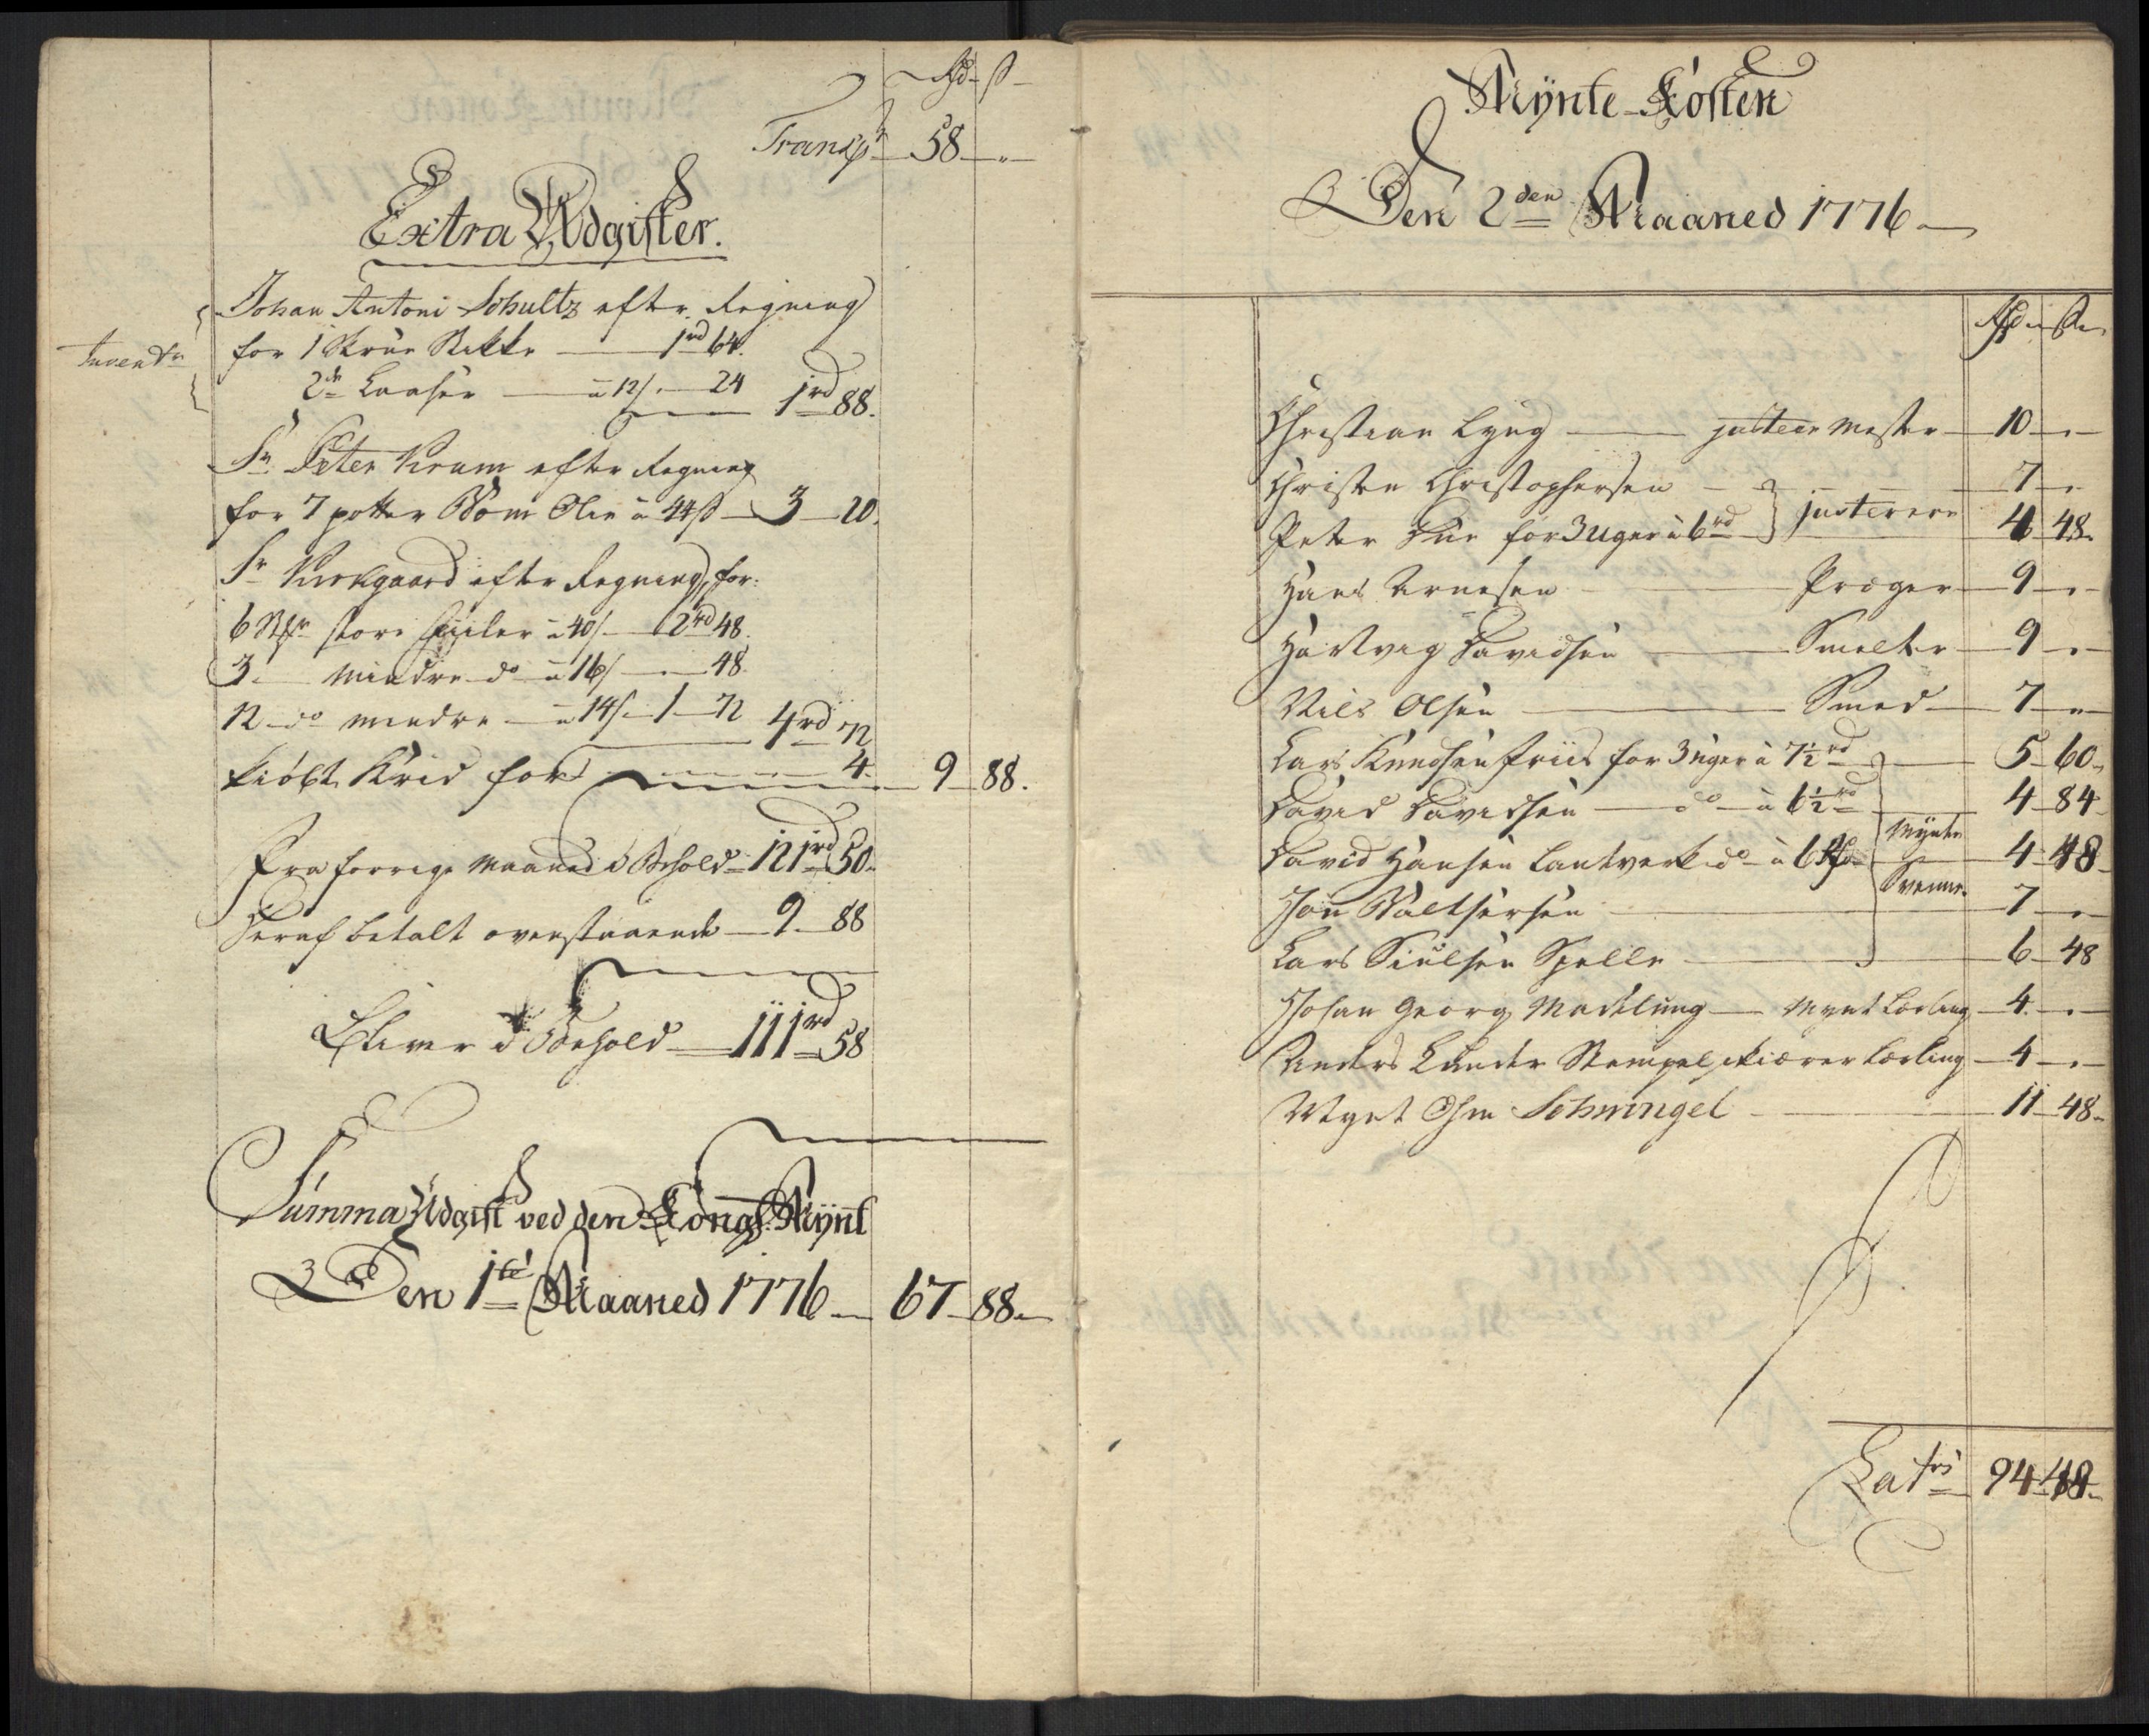 Rd ß
Transp 58 "
Extra Udgifter.
Johan Antoni Schultz efter Regning
Invent
for 1 Skrue Stikke 1rd 64.
2de Laaser a 12/. 24 1rd 88.
Sr. Peter Kram efter Regning
for 7 potter Bom Olie a 44ß 3 20.
Sr Kirkgaard efter Regning, for:
6 store Fiiler a 40/ 2rd 48.
3 mindre do a 16/ 48.
12 do mindre a 14/ 1 72 4rd 72
kiöbt Krid for 4. 9 88.
Fra forrige Maaned i Behold 121rd 50.
Heraf betalt ovenstaaende 9 88
Bliver i Behold 111rd 58
Summa Udgift ved den Kongl. Mÿnt
Den 1te Maaned 1776 67 88.
Mÿnte Kosten
Den 2den Maaned 1776
Rd ß
Christian Lyng justeer Mester 10 "
Christen Christophersen 7 "
Peter Due for 3 uger a 6rd justerere 4 48.
Hans Arnesen Præger 9 "
Hartvig Davidsen Smelter 9 "
Nils Olsen Smed 7 "
Lars Knudsen Friis for 3 uger a 7½rd 5 60.
David Davidsen do a 6½rd 4 84
Mÿnte
David Hansen Lautverk do a 6 Rd 4 48
Svenne.
Jon Baltsersen 7 "
Lars Siulsen Spelle 6 48
Johan Georg Madelung Mynt Lærling 4. "
Anders Lunde Stempelskiærer Lærling 4 "
Mynt Schwingel 11 48.
Latris 94 48